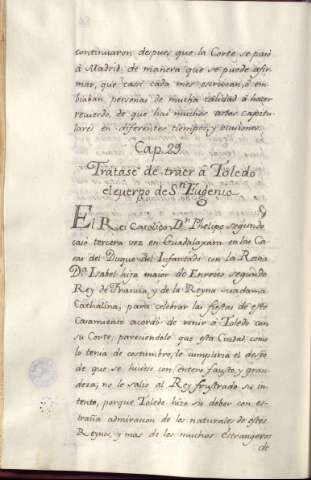 continuaron despues que la Corte se pasó
á Madrid de manera que se puede afir-
mar, que casi cada mes escrivian, ó en-
biaban personas de mucha calidad á hacer
recuerdo, de que hai muchos actos capitu-
lares en diferentes tiempos, y ocasiones.
Cap. 29.
Tratase de traer á Toledo
el cuerpo de Sn. Eugenio
El Rei Catolico Dn. Phelipe segundo
casó tercera vez en Guadalaxara en las Ca-
sas del Duque del Infantado con la Reina
Dª. Isabel hija maior de Enrrico segundo
Rey de Francia, y de la Reyna Madama
Cathalina, para celebrar las fiestas de este
Casamiento acordó de venir á Toledo con
su Corte, pareciendole que esta Ciudad como
lo tenia de costumbre, le cumpliria el deseo
de que se hiciese con entero fausto, y gran-
deza, no le salio al Rey frustrado su in-
tento, porque Toledo hizo su deber con es-
traña admiracion de los naturales de estos
Reynos, y mas de los muchos estrangeros
de